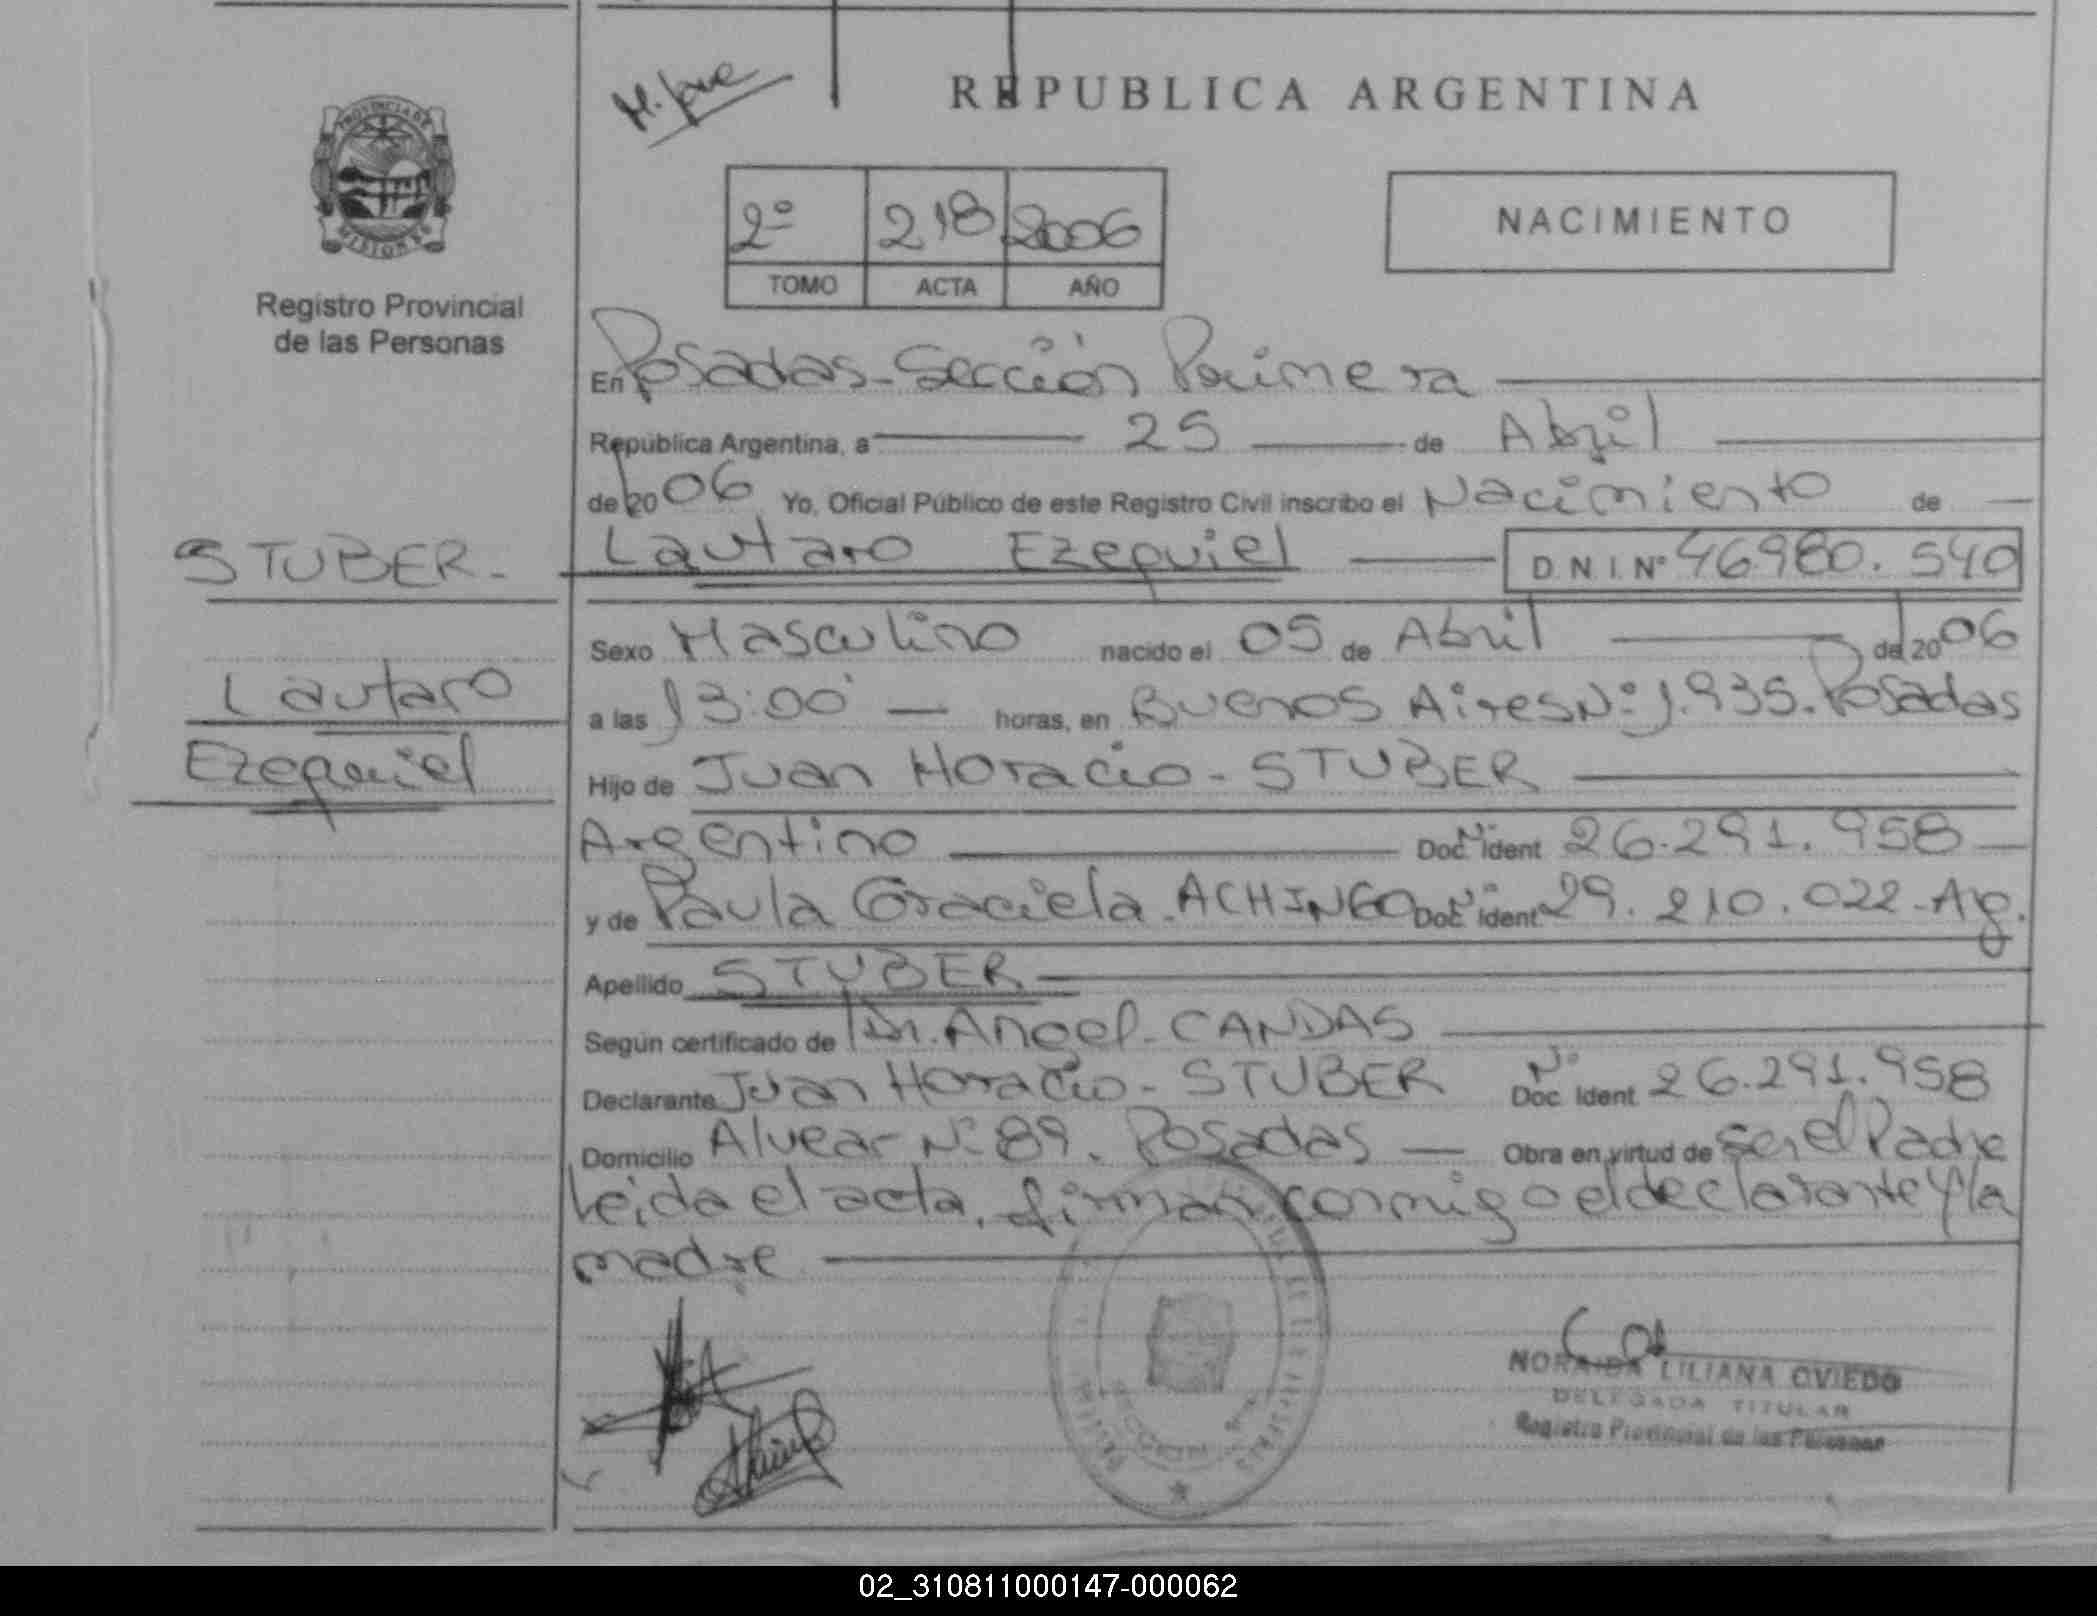 REPUBLICA ARGENTINA
PROVINCIA DE
MISIONES
Registro Provincial
de las Personas
2º 218 2006
TOMO ACTA AÑO
NACIMIENTO
En Posadas-Sección Primera
República Argentina, a 25 de Abril
de 2006 Yo, Oficial Público de este Registro Civil inscribo el Nacimiento de
STUBER-
Lautaro Ezequiel D.N.I. Nº 46980.540
Sexo Masculino nacido el 05 de Abril de 2006
Lautaro
a las 13:00 horas, en Buenos Aires Nº 1.935. Posadas
Ezequiel
Hijo de Juan Horacio-STUBER
Argentino Doc. Nº Ident 26.291.958
y de Paula Graciela-ACHINGO Doc. Nº Ident 29.210.022-Arg.
Apellido STUBER
Según certificado de Dr. Angel-CANDAS
Declarante Juan Horacio-STUBER Nº Doc. Ident. 26.291.958
Domicilio Alvear Nº 89. Posadas Obra en virtud de ser el Padre
Leida el acta, firman conmigo el declarante y la
madre
NORAIDA LILIANA OVIEDO
DELEGADA TITULAR
Registro Provincial de las Personas
02_310811000147-000062